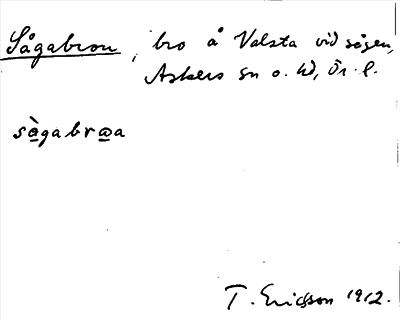 Sågabron, bro å Valsta vid sågen,
Askers sn o. hd, Ör. l.
sàgabrωa
T. Ericsson 1912.